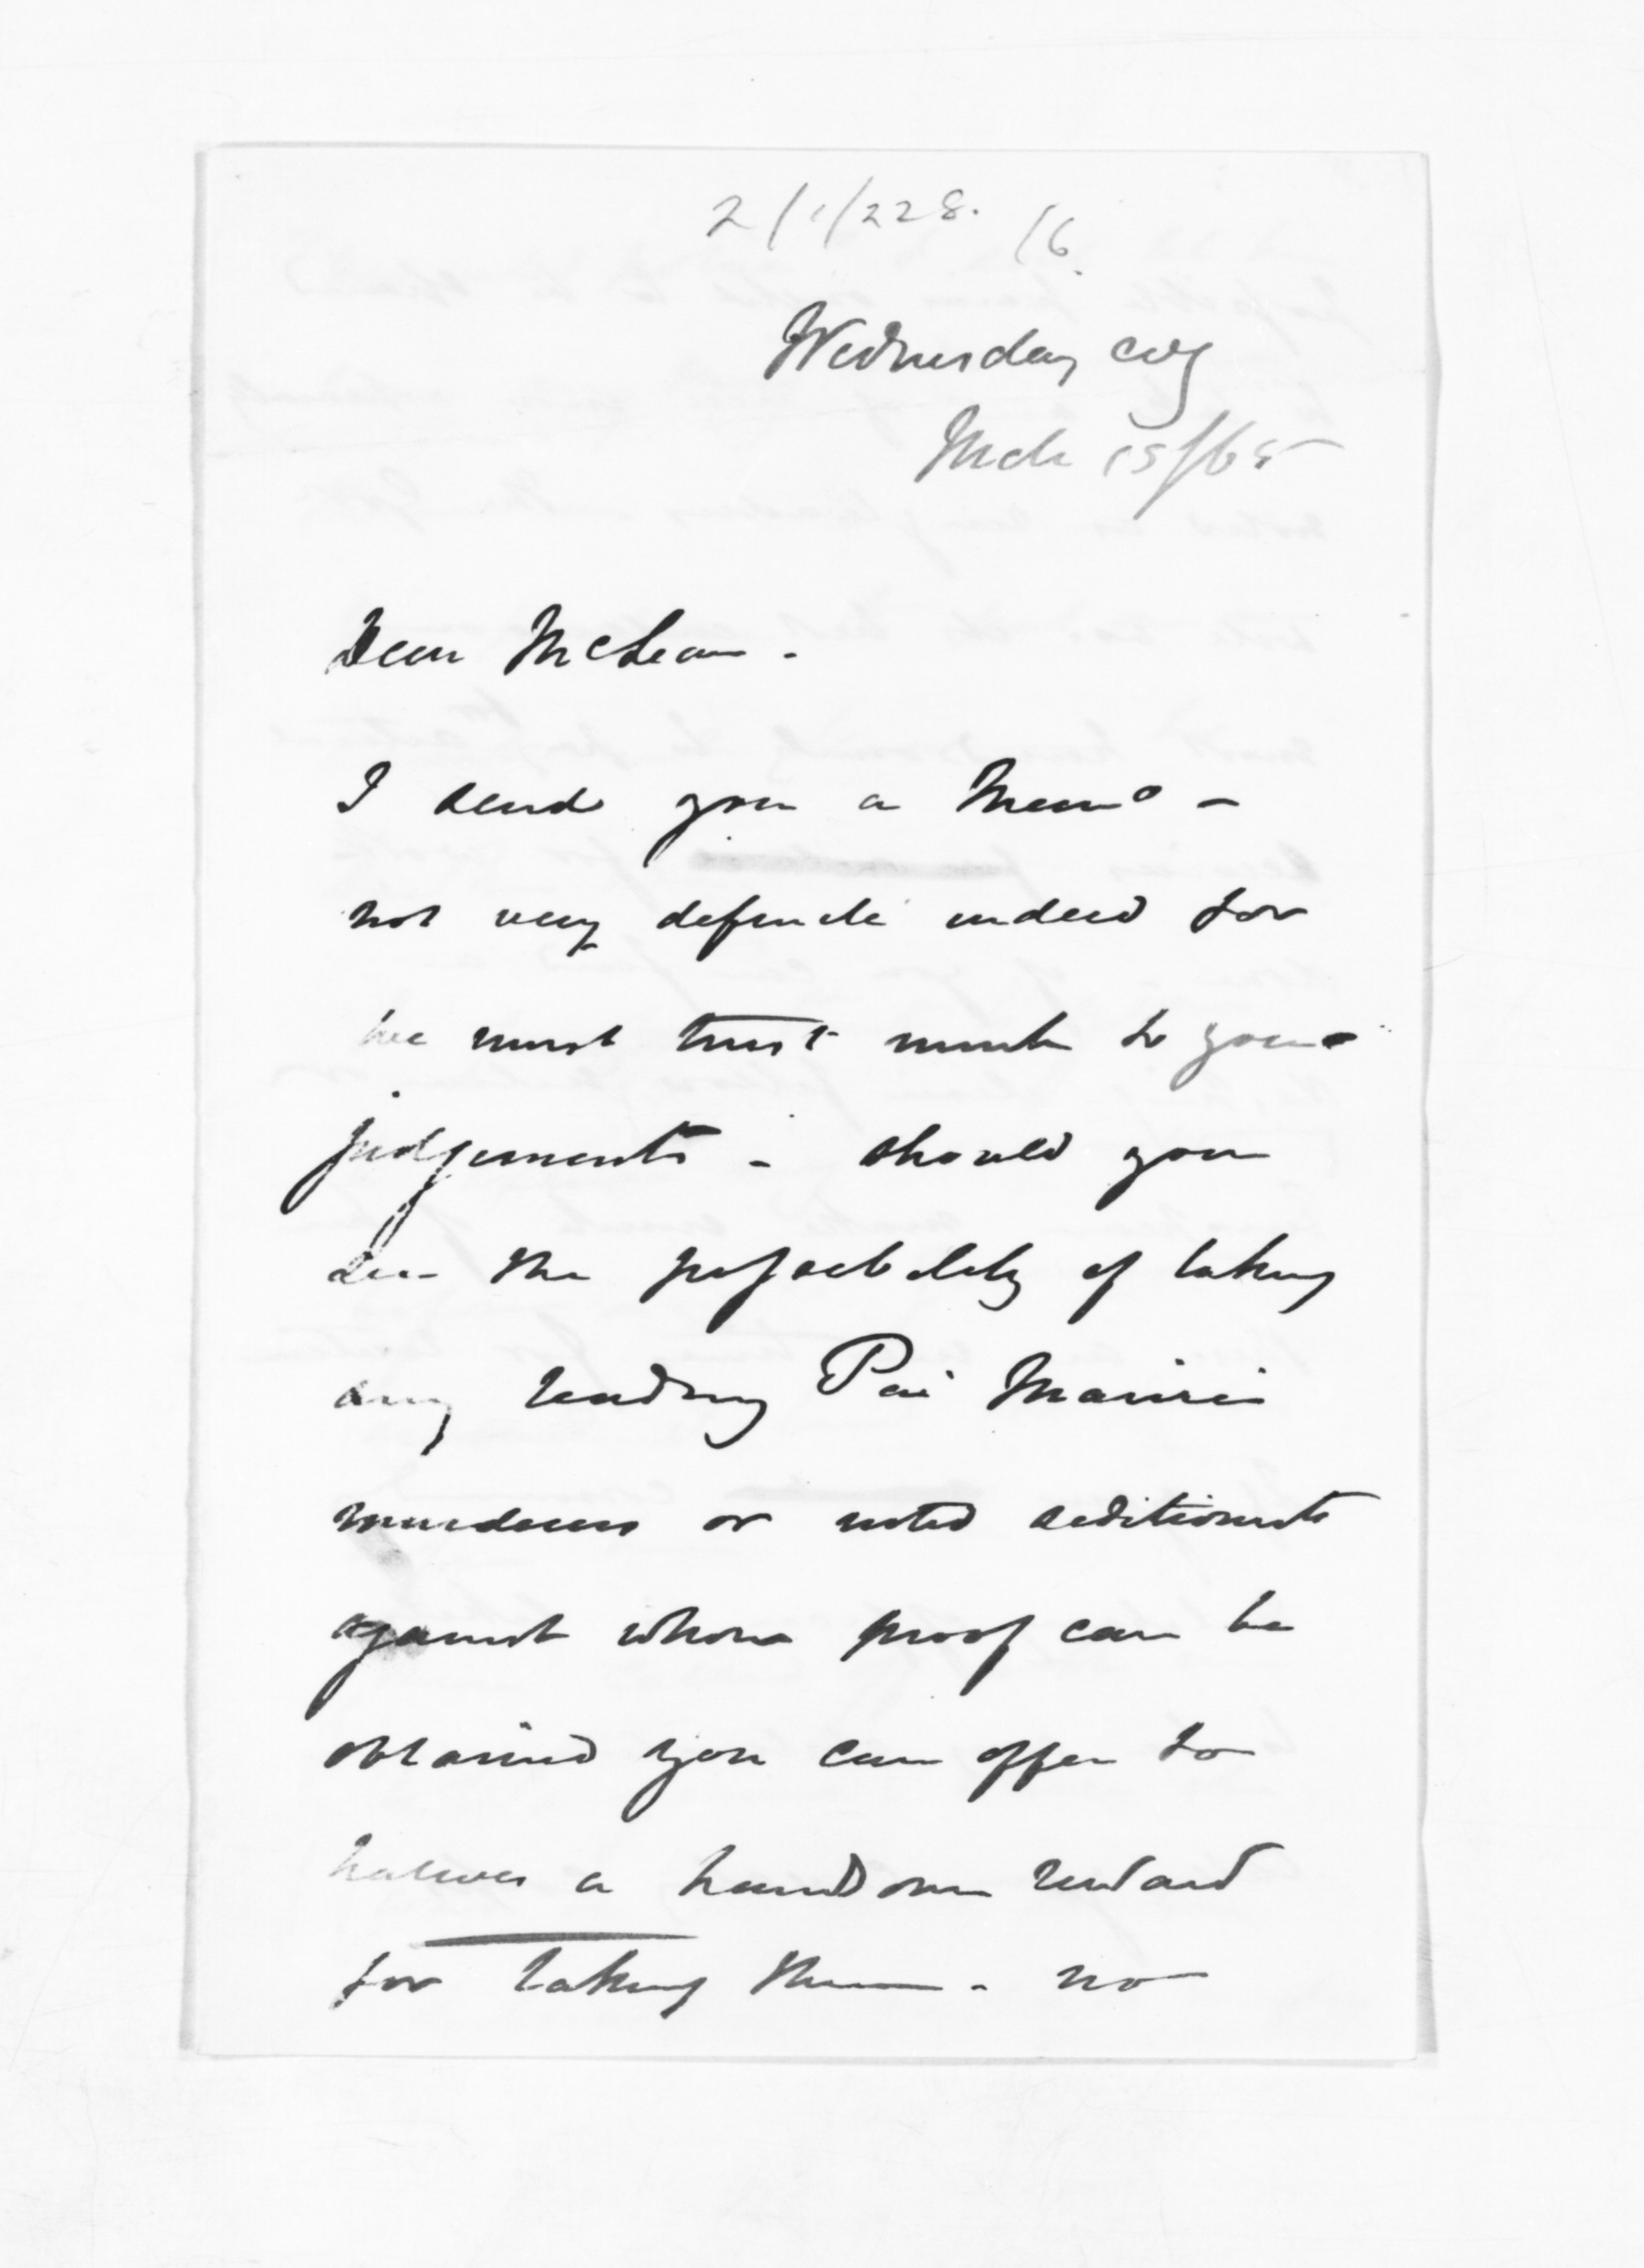 2/1/228. 16.
Wednesday evg
Mch 15/65
Dear McLean.
I send you a Memo -
not very definite indeed for
we must trust much to your
judgement - should you
see the possibility of taking
any leading Pai Marire
murderers or noted seditionists
against whom proof can be
obtained you can offer to
natives a handsome reward
for taking them - no